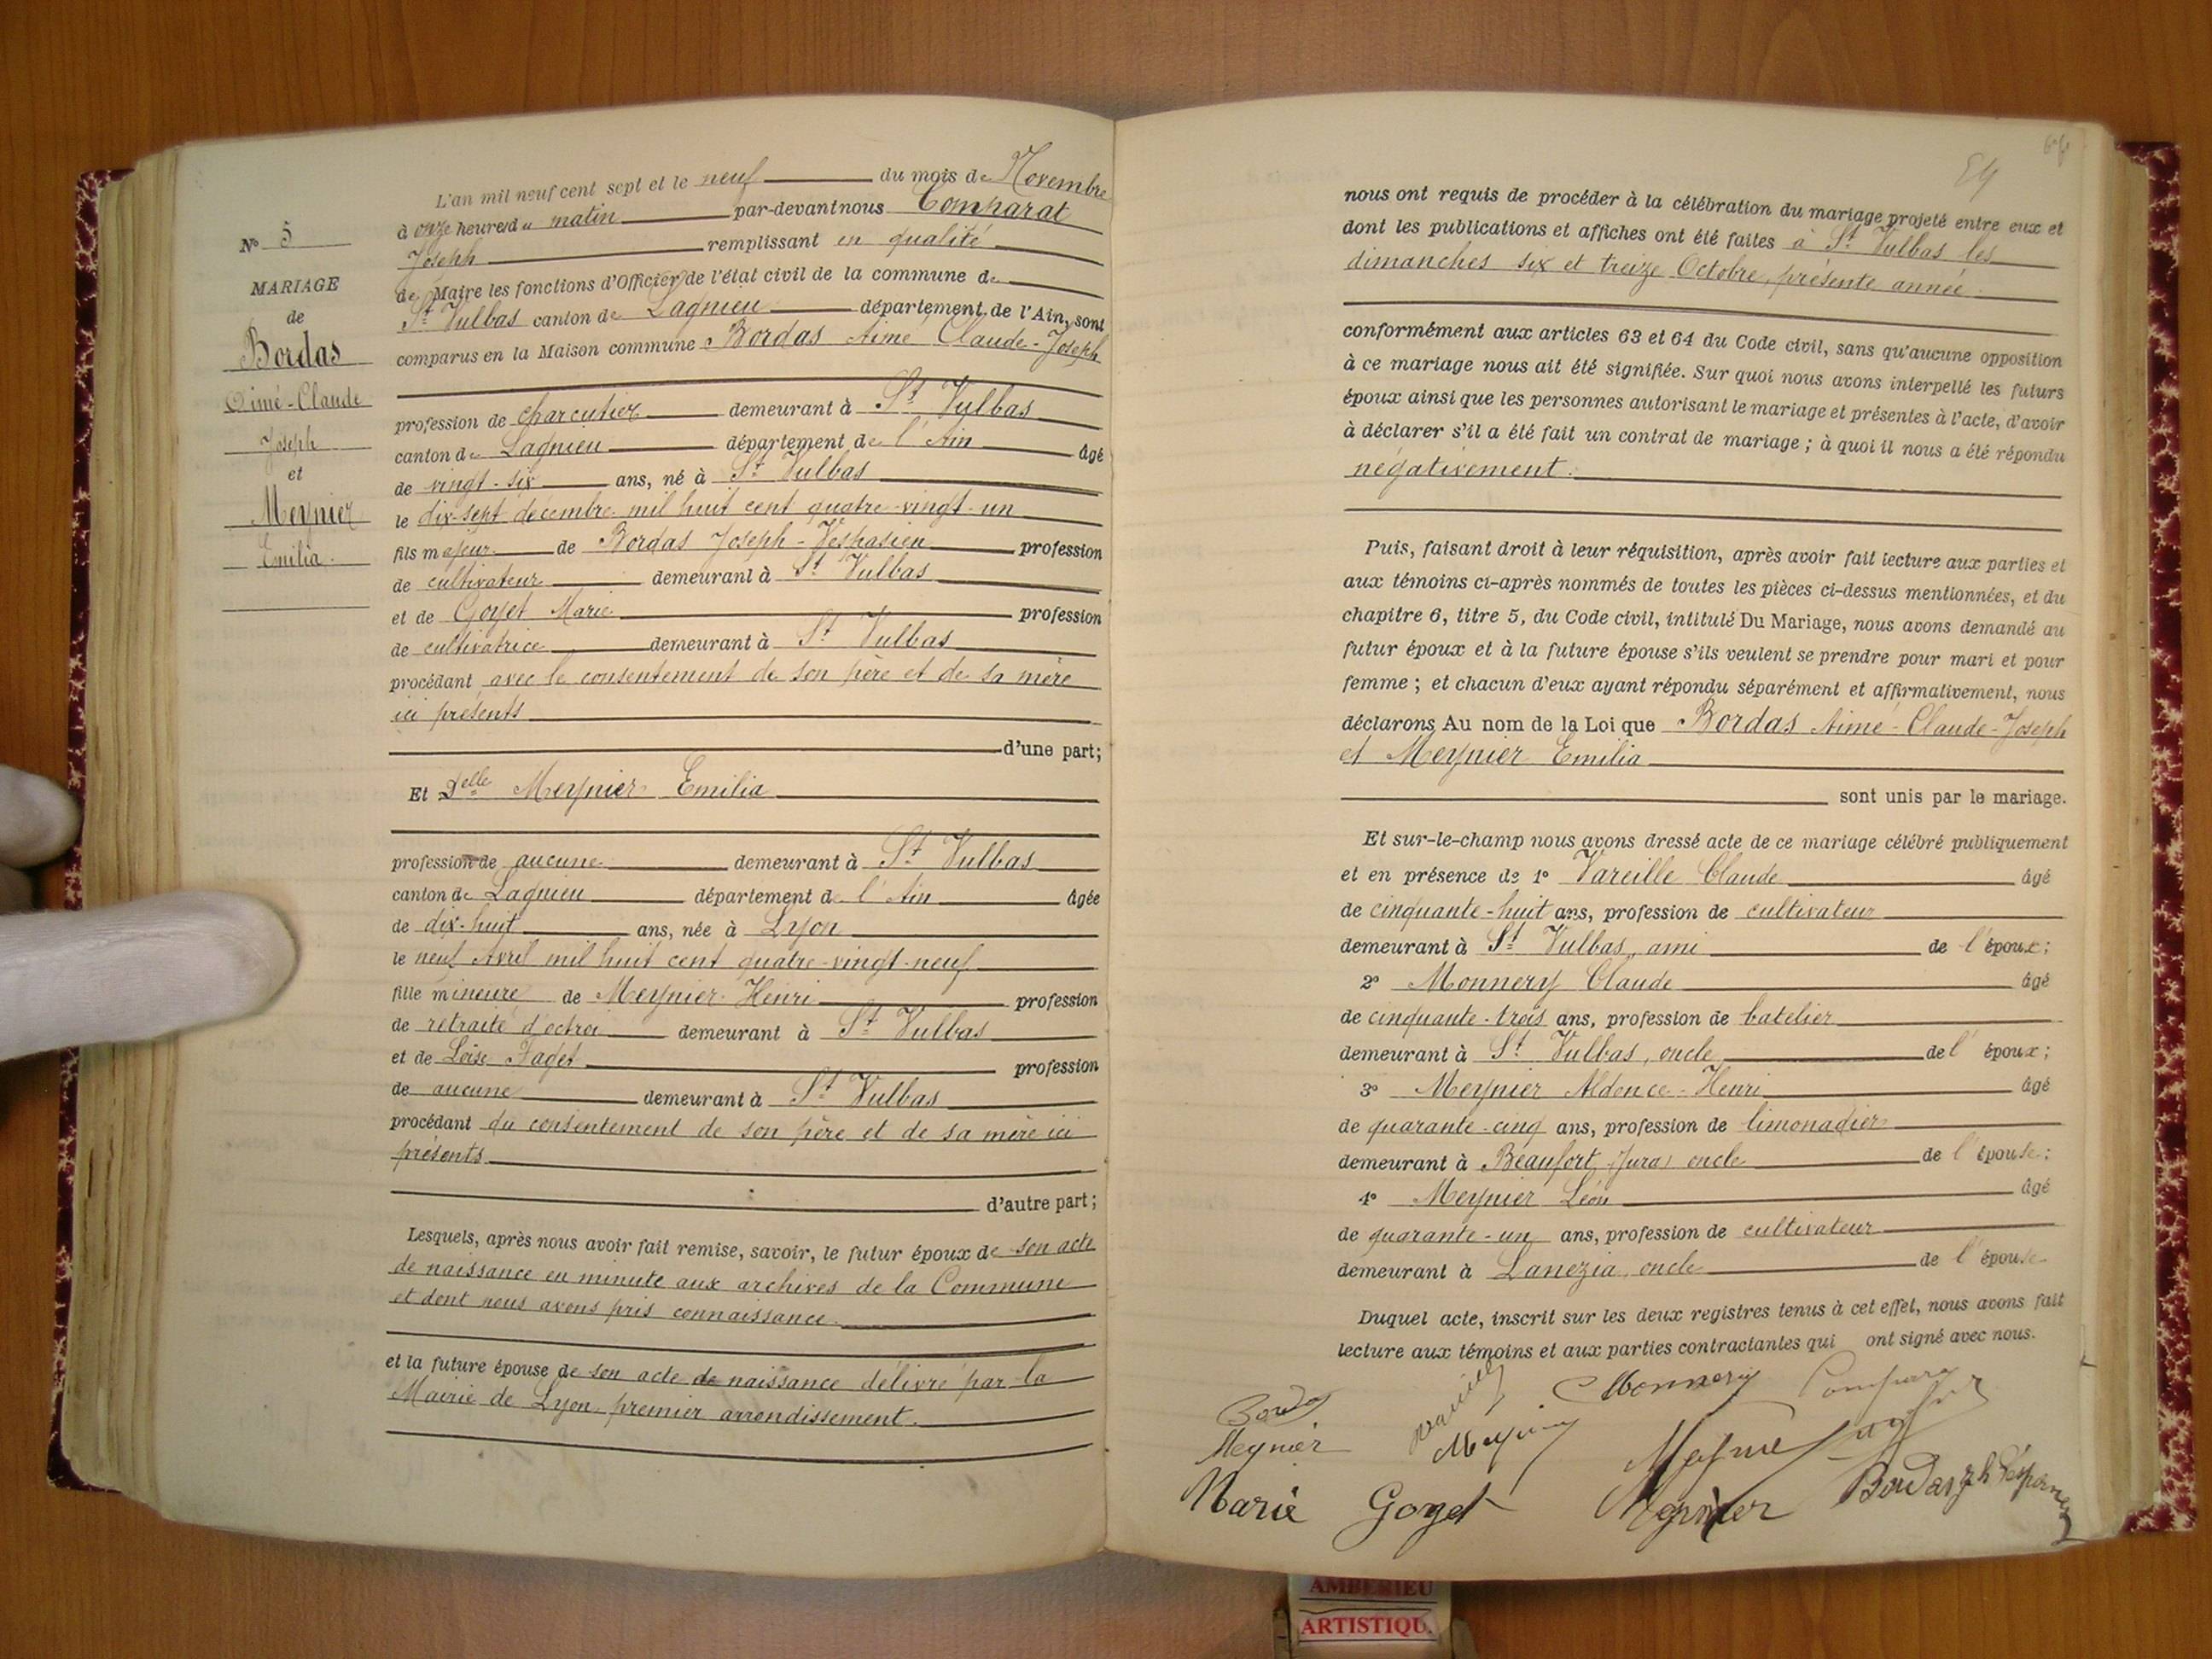 N° 5
MARIAGE
de
Bordas
Aimé-Claude
Joseph
et
Meynier
Emilia.
L'an mil neuf cent sept et le neuf du mois de Novembre
à onze heures du matin par-devant nous Comparat
Joseph remplissant en qualité
de Maire les fonctions d'Officier de l'état civil de la commune de
St Vulbas canton de Lagnieu département de l'Ain, sont
comparus en la Maison commune Bordas Aimé Claude-Joseph
profession de charcutier demeurant à St Vulbas
canton de Lagnieu département de l'Ain âgé
de vingt-six ans, né à St Vulbas
le dix-sept décembre mil huit cent quatre-vingt-un
fils majeur de Bordas Joseph-Vespasien profession
de cultivateur demeurant à St Vulbas
et de Goyet Marie profession
de cultivatrice demeurant à St Vulbas
procédant avec le consentement de son père et de sa mère
ici présents
d'une part;
Et Delle Meynier Emilia
profession de aucune demeurant à St Vulbas
canton de Lagnieu département de l'Ain âgée
de dix-huit ans, née à Lyon
le neuf Avril mil huit cent quatre-vingt-neuf
fille mineure de Meynier Henri profession
de retraité d'octroi demeurant à St Vulbas
et de Loïse Faget profession
de aucune demeurant à St Vulbas
procédant du consentement de son père et de sa mère ici
présents
d'autre part;
Lesquels, après nous avoir fait remise, savoir, le futur époux de son acte
de naissance en minute aux archives de la Commune
et dont nous avons pris connaissance.
et la future épouse de son acte de naissance délivré par la
Mairie de Lyon premier arrondissement.
54
nous ont requis de procéder à la célébration du mariage projeté entre eux et
dont les publications et affiches ont été faites à St Vulbas les
dimanches six et treize Octobre, présente année
conformément aux articles 63 et 64 du Code civil, sans qu'aucune opposition
à ce mariage nous ait été signifiée. Sur quoi nous avons interpellé les futurs
époux ainsi que les personnes autorisant le mariage et présentes à l'acte, d'avoir
à déclarer s'il a été fait un contrat de mariage; à quoi il nous a été répondu
négativement.
Puis, faisant droit à leur réquisition, après avoir fait lecture aux parties et
aux témoins ci-après nommés de toutes les pièces ci-dessus mentionnées, et du
chapitre 6, titre 5, du Code civil, intitulé Du Mariage, nous avons demandé au
futur époux et à la future épouse s'ils veulent se prendre pour mari et pour
femme; et chacun d'eux ayant répondu séparément et affirmativement, nous
déclarons Au nom de la Loi que Bordas Aimé-Claude-Joseph
et Meynier Emilia
sont unis par le mariage.
Et sur-le-champ nous avons dressé acte de ce mariage célébré publiquement
et en présence de 1° Vareille Claude âgé
de cinquante-huit ans, profession de cultivateur
demeurant à St Vulbas, ami de l'époux;
2° Monnery Claude âgé
de cinquante-trois ans, profession de batelier
demeurant à St Vulbas, oncle de l'époux;
3° Meynier Aldonce-Henri âgé
de quarante-cinq ans, profession de limonadier
demeurant à Beaufort (Jura) oncle de l'épouse;
4° Meynier Léon âgé
de quarante-un ans, profession de cultivateur
demeurant à Lanezia, oncle de l'épouse
Duquel acte, inscrit sur les deux registres tenus à cet effet, nous avons fait
lecture aux témoins et aux parties contractantes qui ont signé avec nous.
Vareille Monnery Comparat
Bordas
Meynier Meynier Meynier
Marie Goyet Meynier Bordas
AMBERIEU
ARTISTIQU